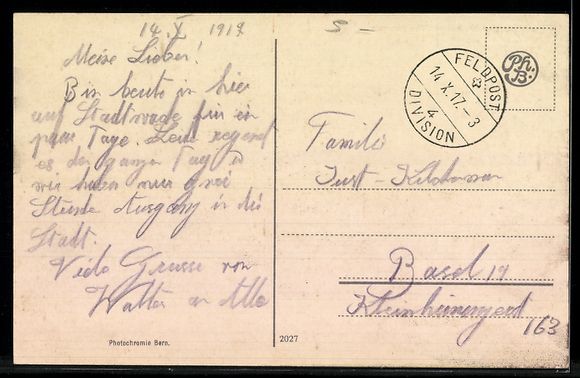 14. X 1917
S –
Meine Lieben!
Bin heute in hier
auf Stadtwache für ein
paar Tage. Leider regnet
es den ganzen Tag
wir haben nur zwei
Stunde Ausgang in die
Stadt.
Viele Grüsse von
Walter an Alle
Photochromie Bern.
2027
FELDPOST
14 X.17.-3
4
DIVISION
Ph.
B.
Familie
Just-
Basel 19
163